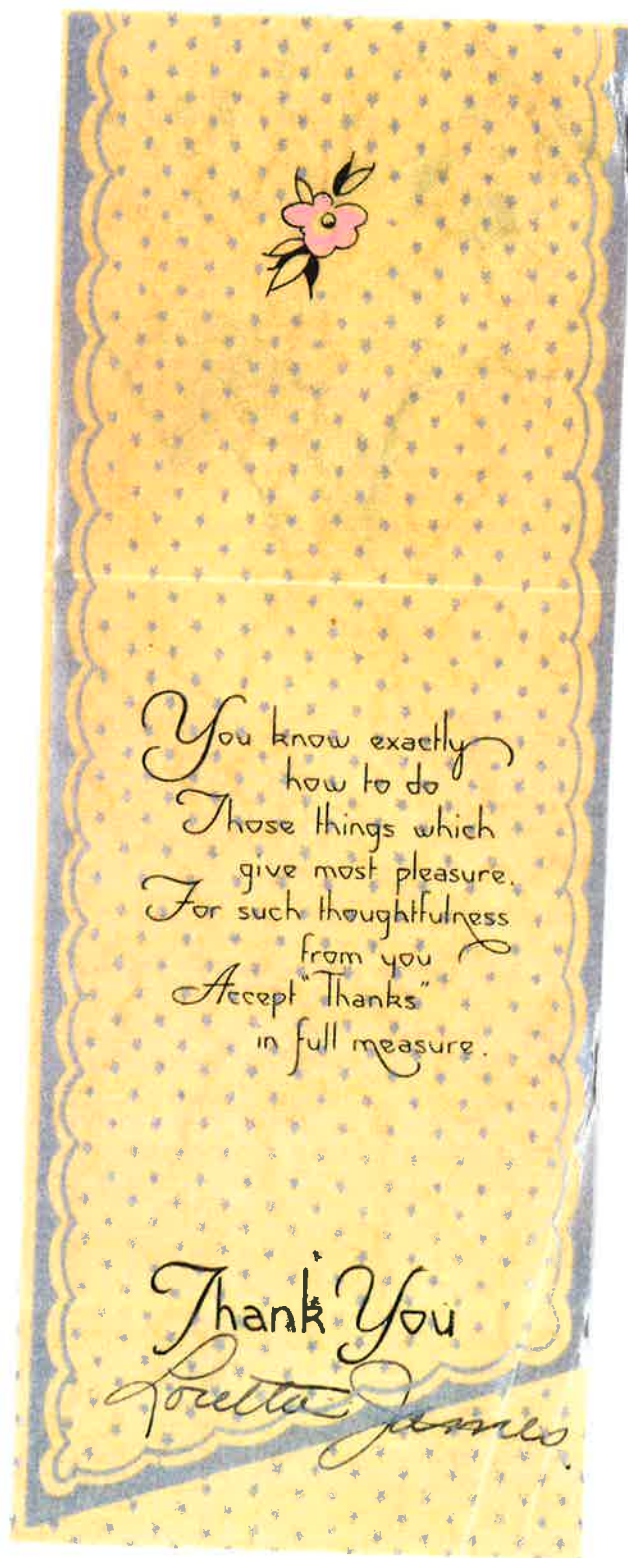 You know exactly
how to do
Those things which
give most pleasure.
For such thoughtfulness
from you
Accept "Thanks"
in full measure.
Thank You
Loretta James.